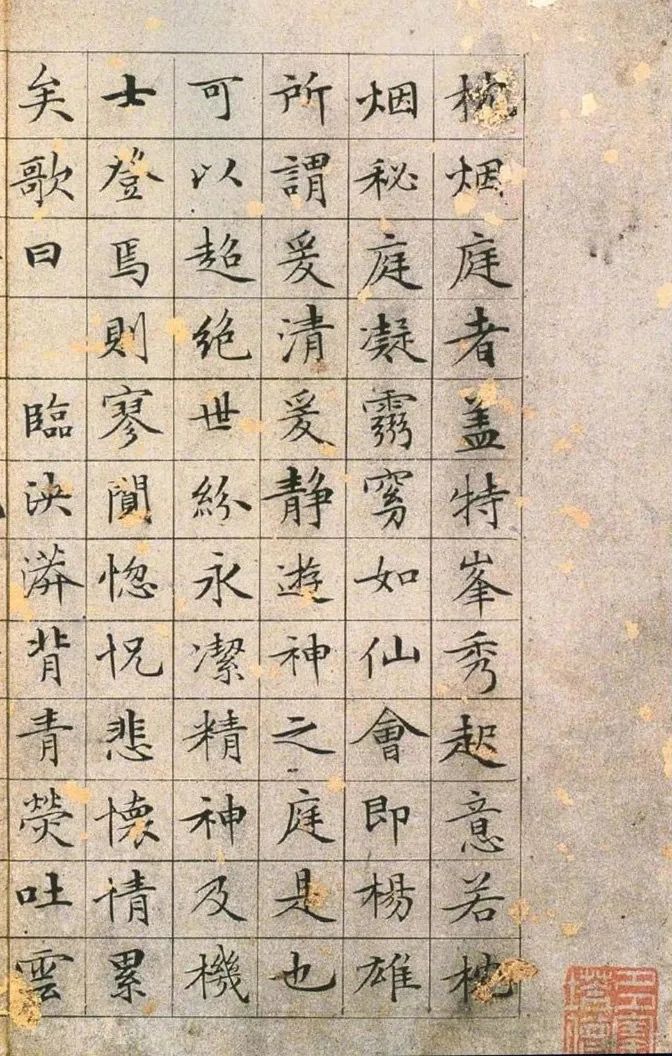 枕烟庭者盖特峯秀起意若枕
烟秘庭凝如仙會即楊雄
所謂爰清爰静遊神之庭是也
可以超絶世紛永潔精神及機
士登焉則寥閴惚怳悲懷情累
矣歌曰　臨泱漭背青熒吐雲